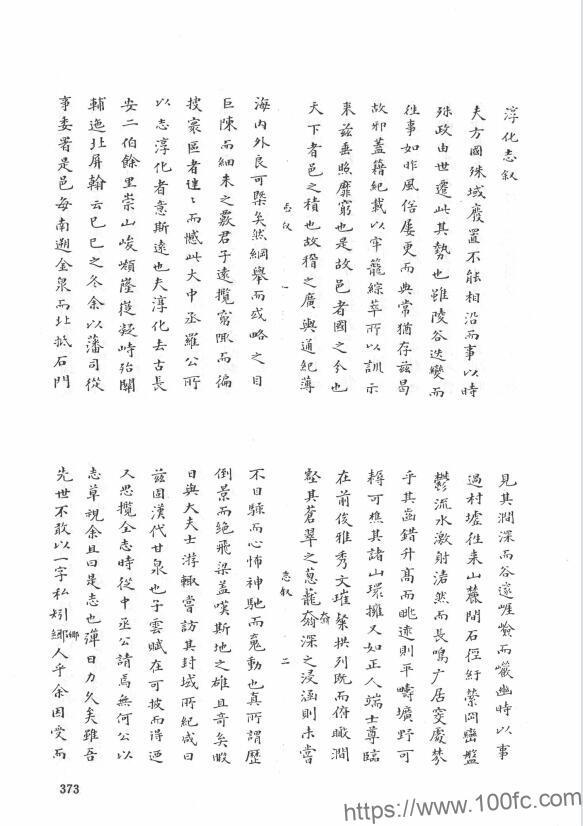 淳化志叙
夫方國殊域廢置不能相沿而事以時
殊政由世遷此其勢也雖陵谷迭變而
往事如昨風俗屢更而典常猶存茲曷
故邪蓋籍紀載以牢籠綜萃所以訓示
来茲垂照靡窮也是故邑者國之分也
天下者邑之積也故稽之廣輿通紀薄
志叙 一
海內外良可槩矣然綱舉而或略之目
巨陳而細未之覈君子遠攬窮陬而徧
披寰區者往〻而憾此大中丞羅公所
以志淳化者意斯遠也夫淳化去古長
安二伯餘里崇山峻嶺隆嶷凝峙殆關
輔迤北屏翰云巳巳之冬余以藩司從
事委署是邑每南遡金泉而北抵石門
見其澗深而谷邃崕嶮而巘幽時以事
過村墟往来山麓間石徑紆縈岡巒盤
鬱流水激射濜然而長鳴广居窔處棼
乎其齒錯升高而眺遠則平疇壙野可
耨可樵其諸山環擁又如正人端士尊臨
在前俊雅秀文璀粲拱列既而俯瞰澗
壑其蒼翠之蔥蘢奫深之浸涵則未嘗
志叙 二
不目駴而心怖神馳而䰟動也真所謂歷
倒景而絕飛梁蓋嘆斯地之雄且奇矣暇
日與大夫士游輙嘗訪其封域所紀咸曰
茲固漢代甘泉也子雲賦在可披而得迺
又思攬全志時從中丞公請焉無何公以
志草視余且曰是志也殫日力久矣雖吾
先世不敢以一字私矧鄉人乎余因受而
373
https://www.100fc.com